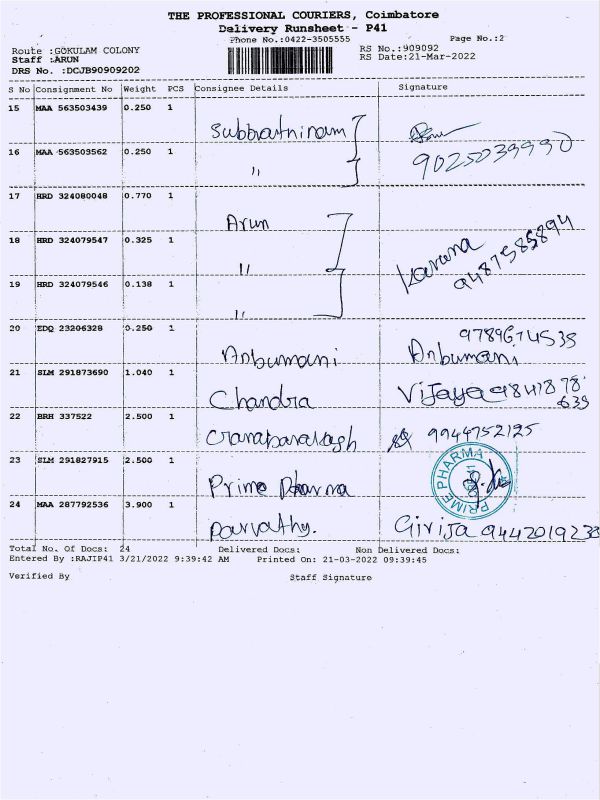 THE PROFESSIONAL COURIERS, Coimbatore
Delivery Runsheet - P41
Phone No.:0422-3505555 Page No.:2
Route :GOKULAM COLONY RS No.:909092
Staff :ARUN RS Date:21-Mar-2022
DRS No. :DCJB90909202
S No Consignment No Weight PCS Consignee Details Signature
15 MAA 563503439 0.250 1
Subbrathinam
16 MAA 563503562 0.250 1
" 9025039990
17 HRD 324080048 0.770 1
Arun
18 HRD 324079547 0.325 1
" Karuna 9487585894
19 HRD 324079546 0.138 1
"
20 EDQ 23206328 0.250 1
Anbumani Anbumani
21 SLM 291873690 1.040 1
Chandra Vijaya 9841878639
22 BRH 337522 2.500 1
9944752125
23 SLM 291827915 2.500 1
Prime Pharma PRIME PHARMA
24 MAA 287792536 3.900 1
Parvathy. Girija
Total No. Of Docs: 24 Delivered Docs: Non Delivered Docs:
Entered By :RAJIP41 3/21/2022 9:39:42 AM Printed On: 21-03-2022 09:39:45
Verified By Staff Signature